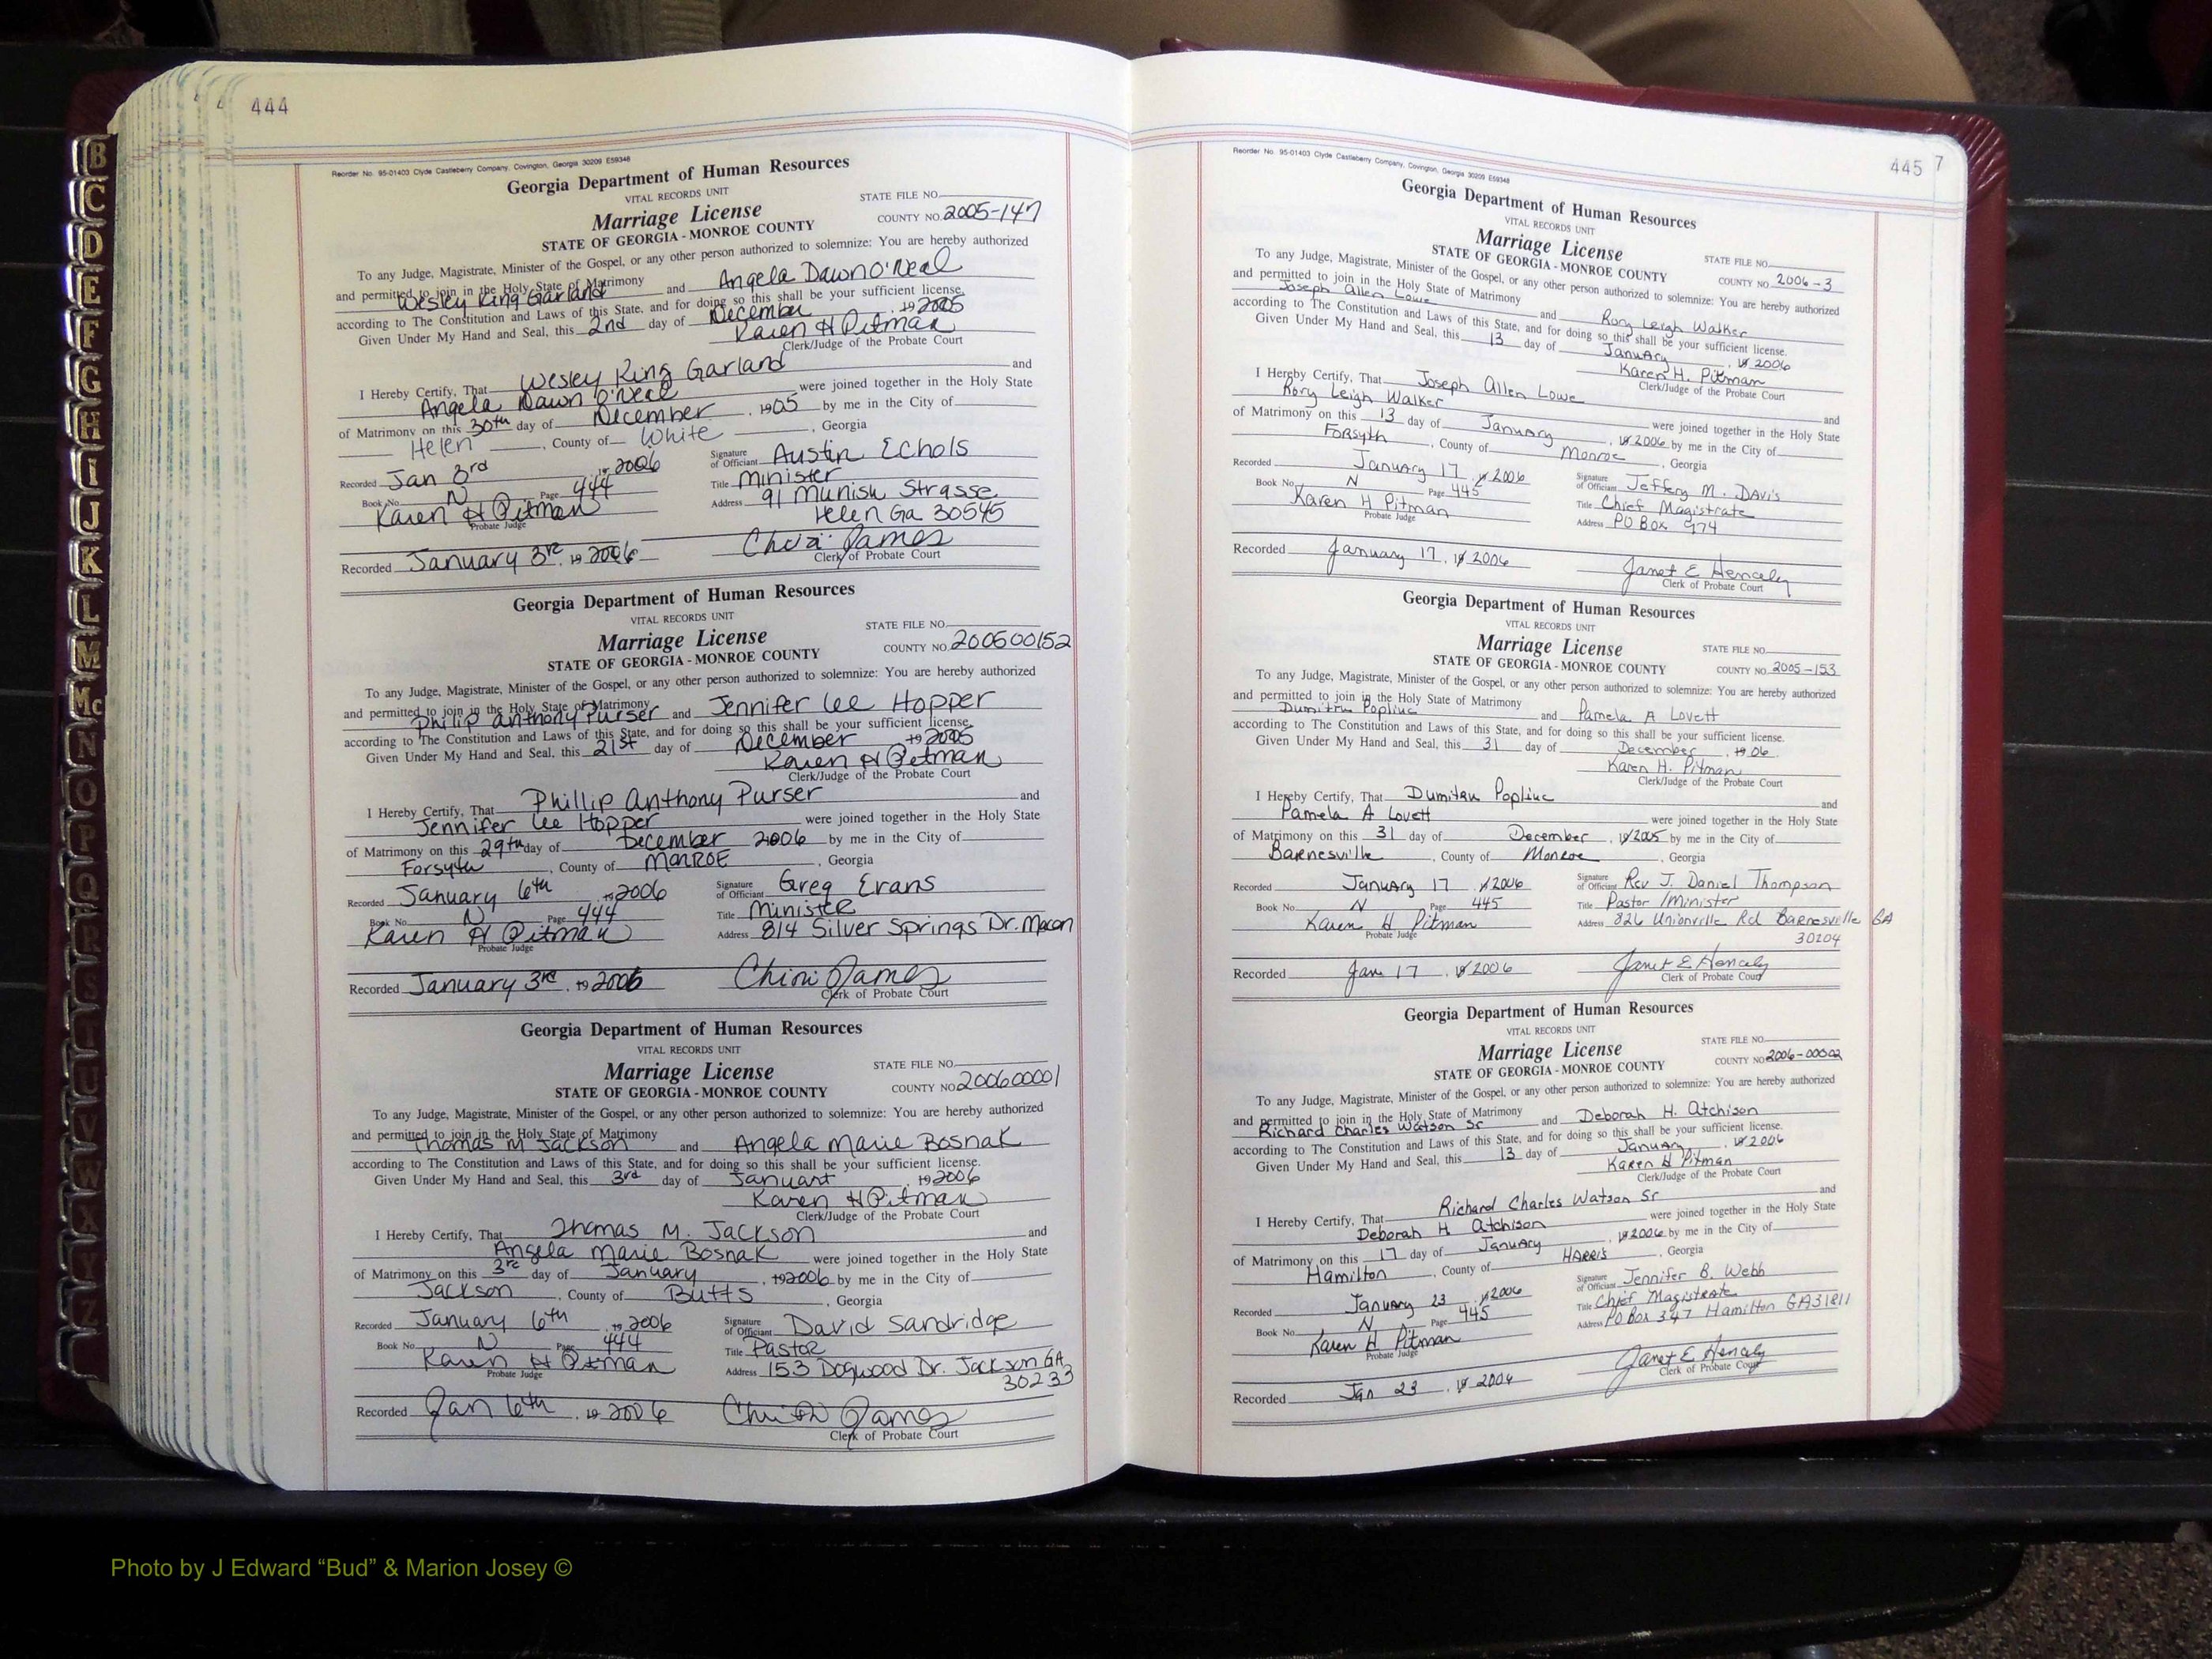 444
Reorder No. 95-01403 Clyde Castleberry Company, Covington, Georgia 30209 E59348
Georgia Department of Human Resources
VITAL RECORDS UNIT
STATE FILE NO.
Marriage License
COUNTY NO. 2005-147
STATE OF GEORGIA - MONROE COUNTY
To any Judge, Magistrate, Minister of the Gospel, or any other person authorized to solemnize: You are hereby authorized
and permitted to join in the Holy State of Matrimony
Wesley King Garland and Angela Dawn O'Neal
according to The Constitution and Laws of this State, and for doing so this shall be your sufficient license.
Given Under My Hand and Seal, this 2nd day of December, 19 2005
Karen H Pitman
Clerk/Judge of the Probate Court
I Hereby Certify, That Wesley King Garland and
Angela Dawn O'Neal were joined together in the Holy State
of Matrimony on this 30th day of December, 1905 by me in the City of
Helen, County of White, Georgia
Recorded Jan 3rd, 19 2006 Signature of Officiant Austin Echols
Book No. N Page 444 Title Minister
Karen H Pitman Address 91 Munish Strasse
Probate Judge Helen Ga 30545
Recorded January 3rd, 19 2006
Clerk of Probate Court
Georgia Department of Human Resources
VITAL RECORDS UNIT
STATE FILE NO.
Marriage License
COUNTY NO. 200500152
STATE OF GEORGIA - MONROE COUNTY
To any Judge, Magistrate, Minister of the Gospel, or any other person authorized to solemnize: You are hereby authorized
and permitted to join in the Holy State of Matrimony
Philip Anthony Purser and Jennifer Lee Hopper
according to The Constitution and Laws of this State, and for doing so this shall be your sufficient license.
Given Under My Hand and Seal, this 21st day of December 19 2005
Karen H Pitman
Clerk/Judge of the Probate Court
I Hereby Certify, That Phillip Anthony Purser and
Jennifer Lee Hopper were joined together in the Holy State
of Matrimony on this 29th day of December 2006 by me in the City of
Forsyth, County of MONROE, Georgia
Recorded January 6th, 19 2006 Signature of Officiant Greg Evans
Book No. N Page 444 Title Minister
Karen H Pitman Address 814 Silver Springs Dr. Macon
Probate Judge
Recorded January 3rd, 19 2006
Clerk of Probate Court
Georgia Department of Human Resources
VITAL RECORDS UNIT
STATE FILE NO.
Marriage License
COUNTY NO. 200600001
STATE OF GEORGIA - MONROE COUNTY
To any Judge, Magistrate, Minister of the Gospel, or any other person authorized to solemnize: You are hereby authorized
and permitted to join in the Holy State of Matrimony
Thomas M Jackson and Angela Marie Bosnak
according to The Constitution and Laws of this State, and for doing so this shall be your sufficient license.
Given Under My Hand and Seal, this 3rd day of Januart, 19 2006
Karen H Pitman
Clerk/Judge of the Probate Court
I Hereby Certify, That Thomas M. Jackson and
Angela Marie Bosnak were joined together in the Holy State
of Matrimony on this 3rd day of January, 19 2006 by me in the City of
Jackson, County of Butts, Georgia
Recorded January 6th, 19 2006 Signature of Officiant David Sandridge
Book No. N Page 444 Title Pastor
Karen H Pitman Address 153 Dogwood Dr. Jackson GA
Probate Judge 30233
Recorded Jan 6th, 19 2006
Clerk of Probate Court
445
7
Reorder No. 95-01403 Clyde Castleberry Company, Covington, Georgia 30209 E59348
Georgia Department of Human Resources
VITAL RECORDS UNIT
Marriage License
STATE FILE NO.
STATE OF GEORGIA - MONROE COUNTY
COUNTY NO. 2006-3
To any Judge, Magistrate, Minister of the Gospel, or any other person authorized to solemnize: You are hereby authorized
and permitted to join in the Holy State of Matrimony
Joseph Allen Lowe and Rory Leigh Walker
according to The Constitution and Laws of this State, and for doing so this shall be your sufficient license.
Given Under My Hand and Seal, this 13 day of January, 19 2006
Karen H. Pitman
Clerk/Judge of the Probate Court
I Hereby Certify, That Joseph Allen Lowe and
Rory Leigh Walker were joined together in the Holy State
of Matrimony on this 13 day of January, 19 2006 by me in the City of
Forsyth, County of Monroe, Georgia
Recorded January 17, 19 2006 Signature of Officiant Jeffery M. Davis
Book No. N Page 445 Title Chief Magistrate
Karen H Pitman Address PO Box 974
Probate Judge
Recorded January 17, 19 2006 Janet E Hencely
Clerk of Probate Court
Georgia Department of Human Resources
VITAL RECORDS UNIT
Marriage License
STATE FILE NO.
STATE OF GEORGIA - MONROE COUNTY
COUNTY NO. 2005-153
To any Judge, Magistrate, Minister of the Gospel, or any other person authorized to solemnize: You are hereby authorized
and permitted to join in the Holy State of Matrimony
Dumitru Popliuc and Pamela A Lovett
according to The Constitution and Laws of this State, and for doing so this shall be your sufficient license.
Given Under My Hand and Seal, this 31 day of December, 19 06
Karen H. Pitman
Clerk/Judge of the Probate Court
I Hereby Certify, That Dumitru Popliuc and
Pamela A Lovett were joined together in the Holy State
of Matrimony on this 31 day of December, 19 2005 by me in the City of
Barnesville, County of Monroe, Georgia
Recorded January 17, 19 2006 Signature of Officiant Rev J. Daniel Thompson
Book No. N Page 445 Title Pastor/Minister
Karen H Pitman Address 826 Unionville Rd Barnesville GA
Probate Judge 30204
Recorded Jan 17, 19 2006 Janet E Hencely
Clerk of Probate Court
Georgia Department of Human Resources
VITAL RECORDS UNIT
Marriage License
STATE FILE NO.
STATE OF GEORGIA - MONROE COUNTY
COUNTY NO. 2006-00002
To any Judge, Magistrate, Minister of the Gospel, or any other person authorized to solemnize: You are hereby authorized
and permitted to join in the Holy State of Matrimony
Richard Charles Watson Sr and Deborah H. Atchison
according to The Constitution and Laws of this State, and for doing so this shall be your sufficient license.
Given Under My Hand and Seal, this 13 day of January, 19 2006
Karen H Pitman
Clerk/Judge of the Probate Court
I Hereby Certify, That Richard Charles Watson Sr and
Deborah H. Atchison were joined together in the Holy State
of Matrimony on this 17 day of January, 19 2006 by me in the City of
Hamilton, County of HARRIS, Georgia
Recorded January 23, 19 2006 Signature of Officiant Jennifer B. Webb
Book No. N Page 445 Title Chief Magistrate
Karen H. Pitman Address PO Box 347 Hamilton GA 31811
Probate Judge
Recorded Jan 23, 19 2006 Janet E Hencely
Clerk of Probate Court
B
C
D
E
F
G
H
I
J
K
L
M
Mc
N
O
P
Q
R
S
T
U
V
W
X
Y
Z
Photo by J Edward “Bud” & Marion Josey ©